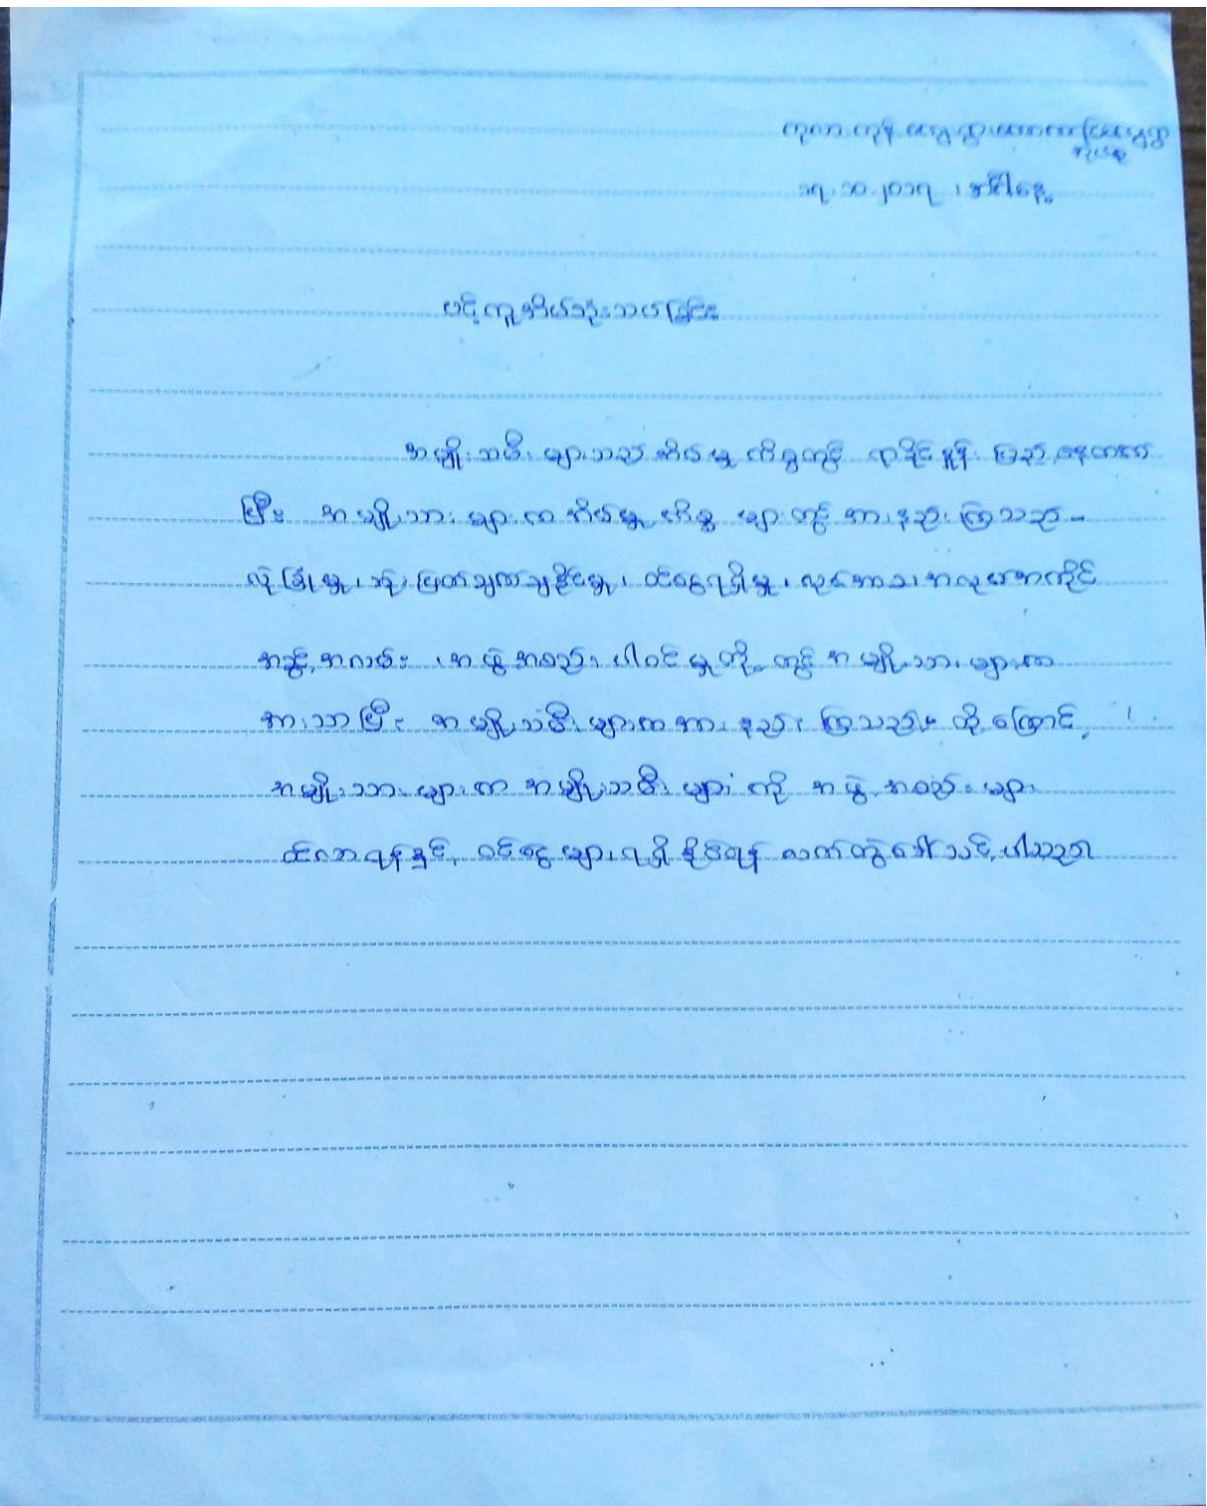 ၁၅.၁၀.၂၀၁၅၊ အင်္ဂါနေ့
ပင့်ကူအိမ်သုံးသပ်ခြင်း
အမျိုးသမီးများသည် အိမ်မှုကိစ္စတွင် ရာခိုင်နှုန်းပြည့်နေတတ်
ပြီး အမျိုးသားများက အိမ်မှုကိစ္စများတွင် အားနည်းကြသည်-
လုံခြုံမှု၊ ဆုံးဖြတ်ချက်ချနိုင်မှု၊ ဝင်ငွေရရှိမှု၊ လုပ်အား၊ အလုပ်အကိုင်
အခွင့်အလမ်း၊ အဖွဲ့အစည်းပါဝင်မှုတို့တွင် အမျိုးသားများက
အားသာပြီး အမျိုးသမီးများက အားနည်းကြသည်။ ထို့ကြောင့်
အမျိုးသားများက အမျိုးသမီးများကို အဖွဲ့အစည်းများ
ဝင်လာရန်နှင့် ဝင်ငွေများရရှိနိုင်ရန် လက်တွဲခေါ်သင့်ပါသည်။